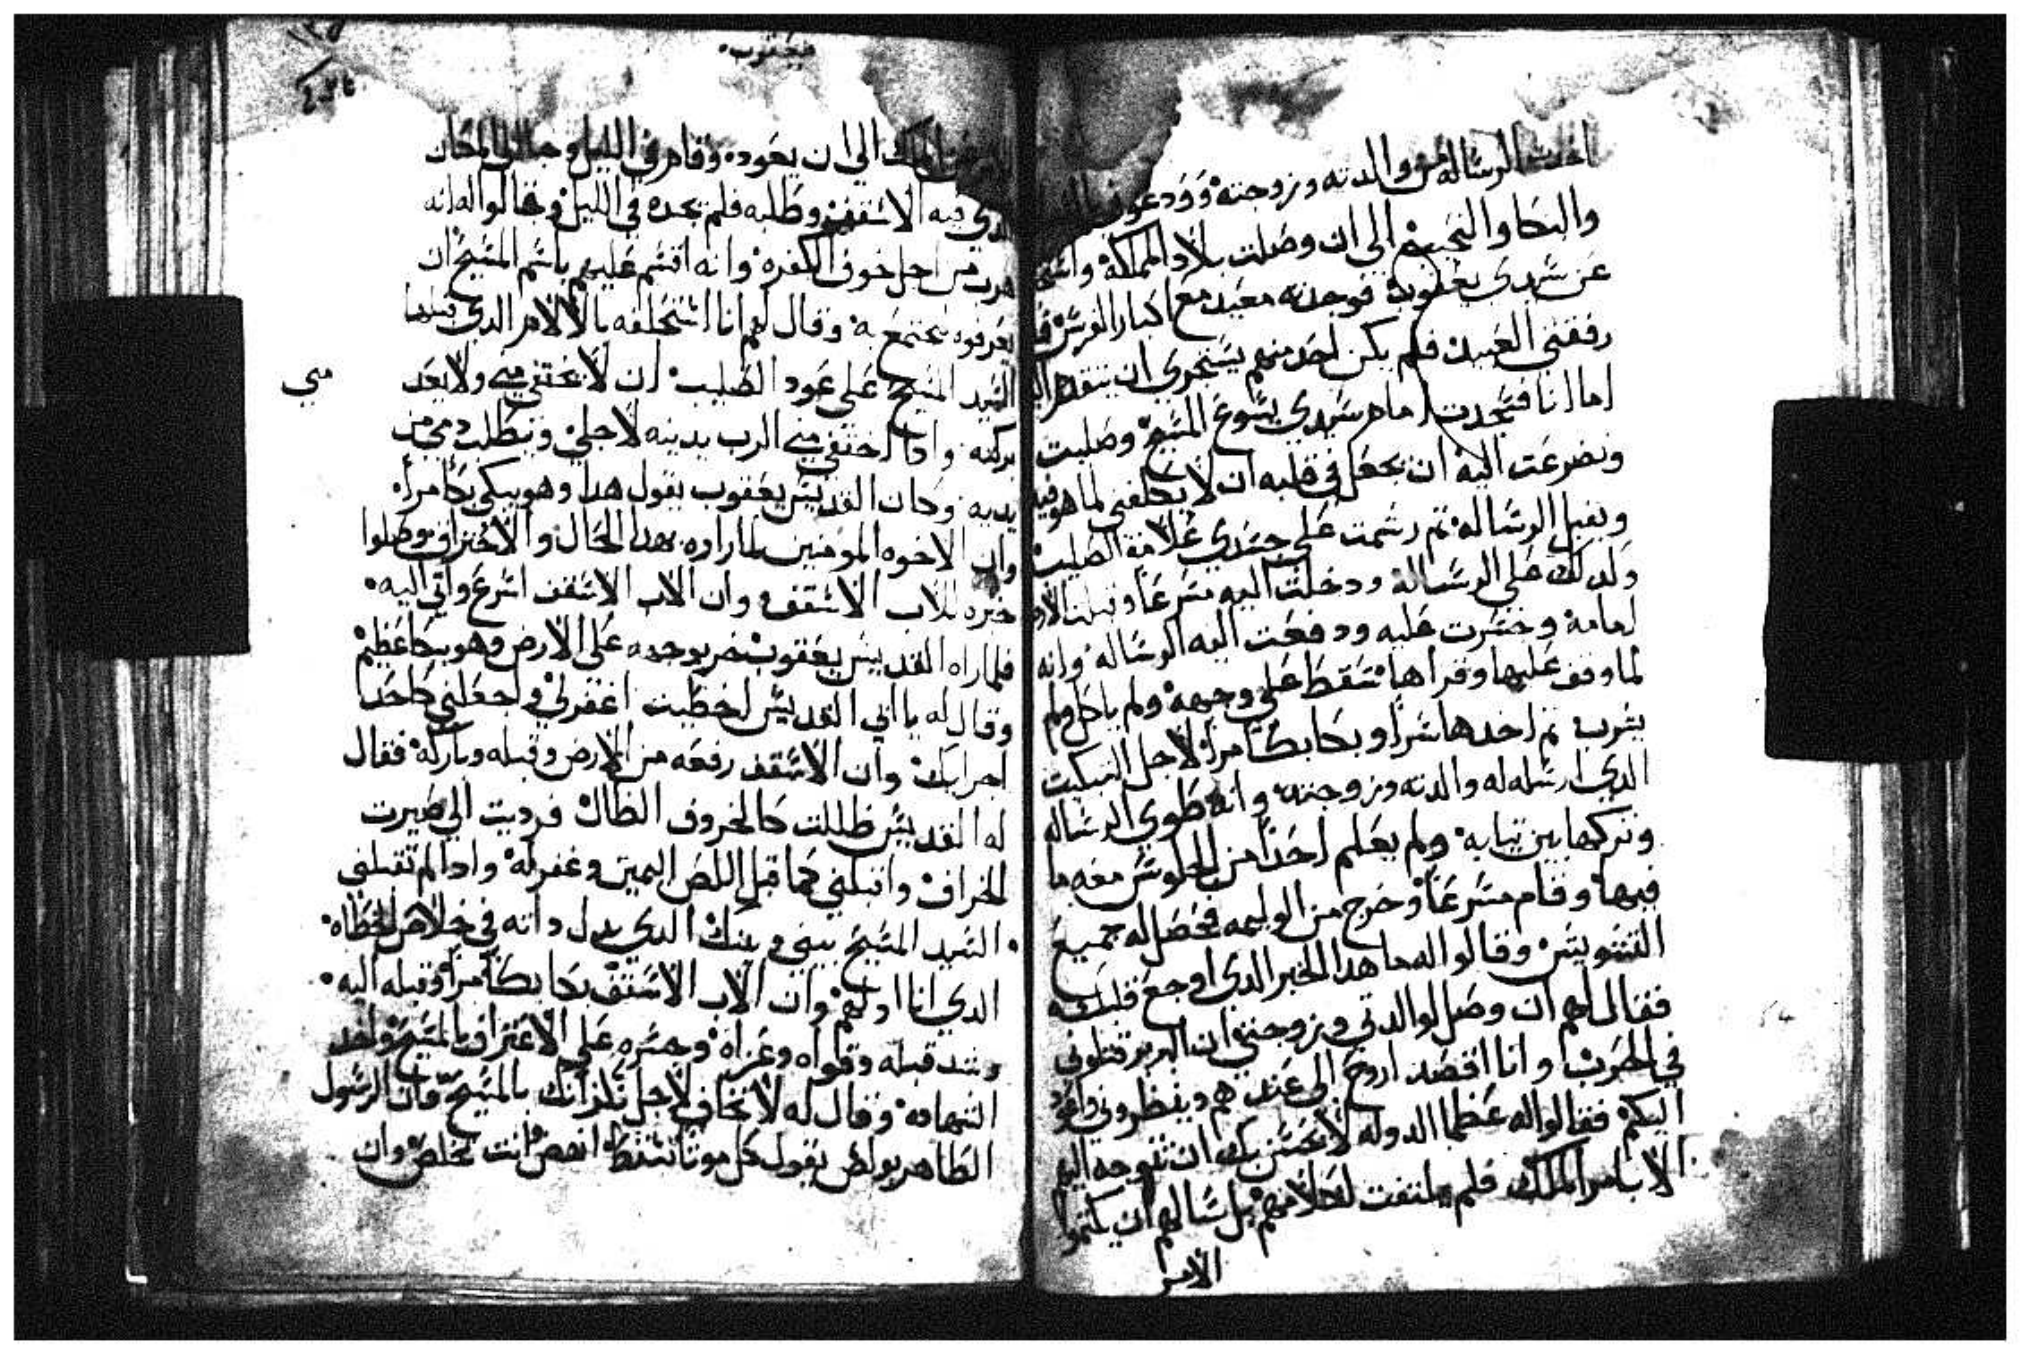 اخدت الرساله من والدته وزوجته وودعوني
والبكا والنحيب الي ان وصلت بلاد المملكه
عن سيدي يعقوب فوجدته معيد مع اكبار الفرس
رفقتي العبيد فلم يكن احد منهم يستجري ان يتقدم
اما انا فسجدت امام سيدي يسوع المسيح وصليت
وتضرعت اليه ان يجعل في قلبه ان لا يخالفني لما هو فيه
ويقبل الرساله ثم رشمت علي جسدي علامة الصليب
ولدلك علي الرساله ودخلت اليه مسرعا وقبلت الارض
امامه وجسرت عليه ودفعت اليه الرساله وانه
لما وقف عليها وقراها سقط علي وجهه ولم ياكل ولم
يشرب ثم اخدها سرا وبكا بكا مرا لاجل التبكيت
الدي ارسله له والدته وزوجته وانه طوي الرساله
وتركها بين تيابه ولم يعلم احدا من الجلوس معه ما
فيها وقام مسرعا وخرج من الوليمه فحصل له جميع
التشويش وقالوا له ما هدا الخبر الدي اوجع قلبك
فقال لهم ان وصل لوالدتي وزوجتي ان البربر قتلوني
في الحرب وانا اقصد اروح الي عندهم وينظروني واعود
اليكم فقالوا له عظما الدوله لا يحسن بك ان تتوجه اليهم
الا بامر الملك فلم يلتفت لكلامهم بل سالهم ان يكتموا
الامر
فيعقوب
الملك الي ان يعود وقام في الليل وجا الي المكان
الدي فيه الاسقف وطلبه فلم يجده في الليل وقالوا له انه
هرب من اجل خوف الكفره وانه اقسم عليهم باسم المسيح ان
يعرفوه يجتمع به وقال لهم انا استحلفه بالالام الدي قبلها
السيد المسيح علي عود الصليب ان لا يختفي مني ولا يبعد
مني
بركته وادا اختفي مني الرب يدينه لاجلي ويطلب دمي من
يديه وكان القديس يعقوب يقول هدا وهو يبكي بكا مرا
وان الاخوه المومنين لما راوه بهدا الحال والاحتراق وصلوا
خبره للاب الاسقف وان الاب الاسقف اسرع واتي اليه
فلما راه القديس يعقوب خر بوجهه علي الارض وهو ببكا عظيم
وقال له يا ابي القديس اخطيت اغفر لي واجعلني كاحد
اجرايك وان الاسقف رفعه من الارض وقبله وباركه فقال
له القديس ظللت كالخروف الظال فرديت الي صيرت
الخراف واقبلني كما قبل اللص اليمين وغفر له وادا لم تقبلني
السيد المسيح بيني وبينك الدي بدل داته في خلاص الخطاه
الدي انا اولهم وان الاب الاسقف بكا بكا مرا وقبله اليه
وعند قبله وقواه وعزاه وجسره علي الاعتراف بالمسيح واخد
الشهاده وقال له لا تخاف لاجل نكرانك بالمسيح فان الرسول
الطاهر بولص يقول كل موتا تسقط انهض انت تخلص وان